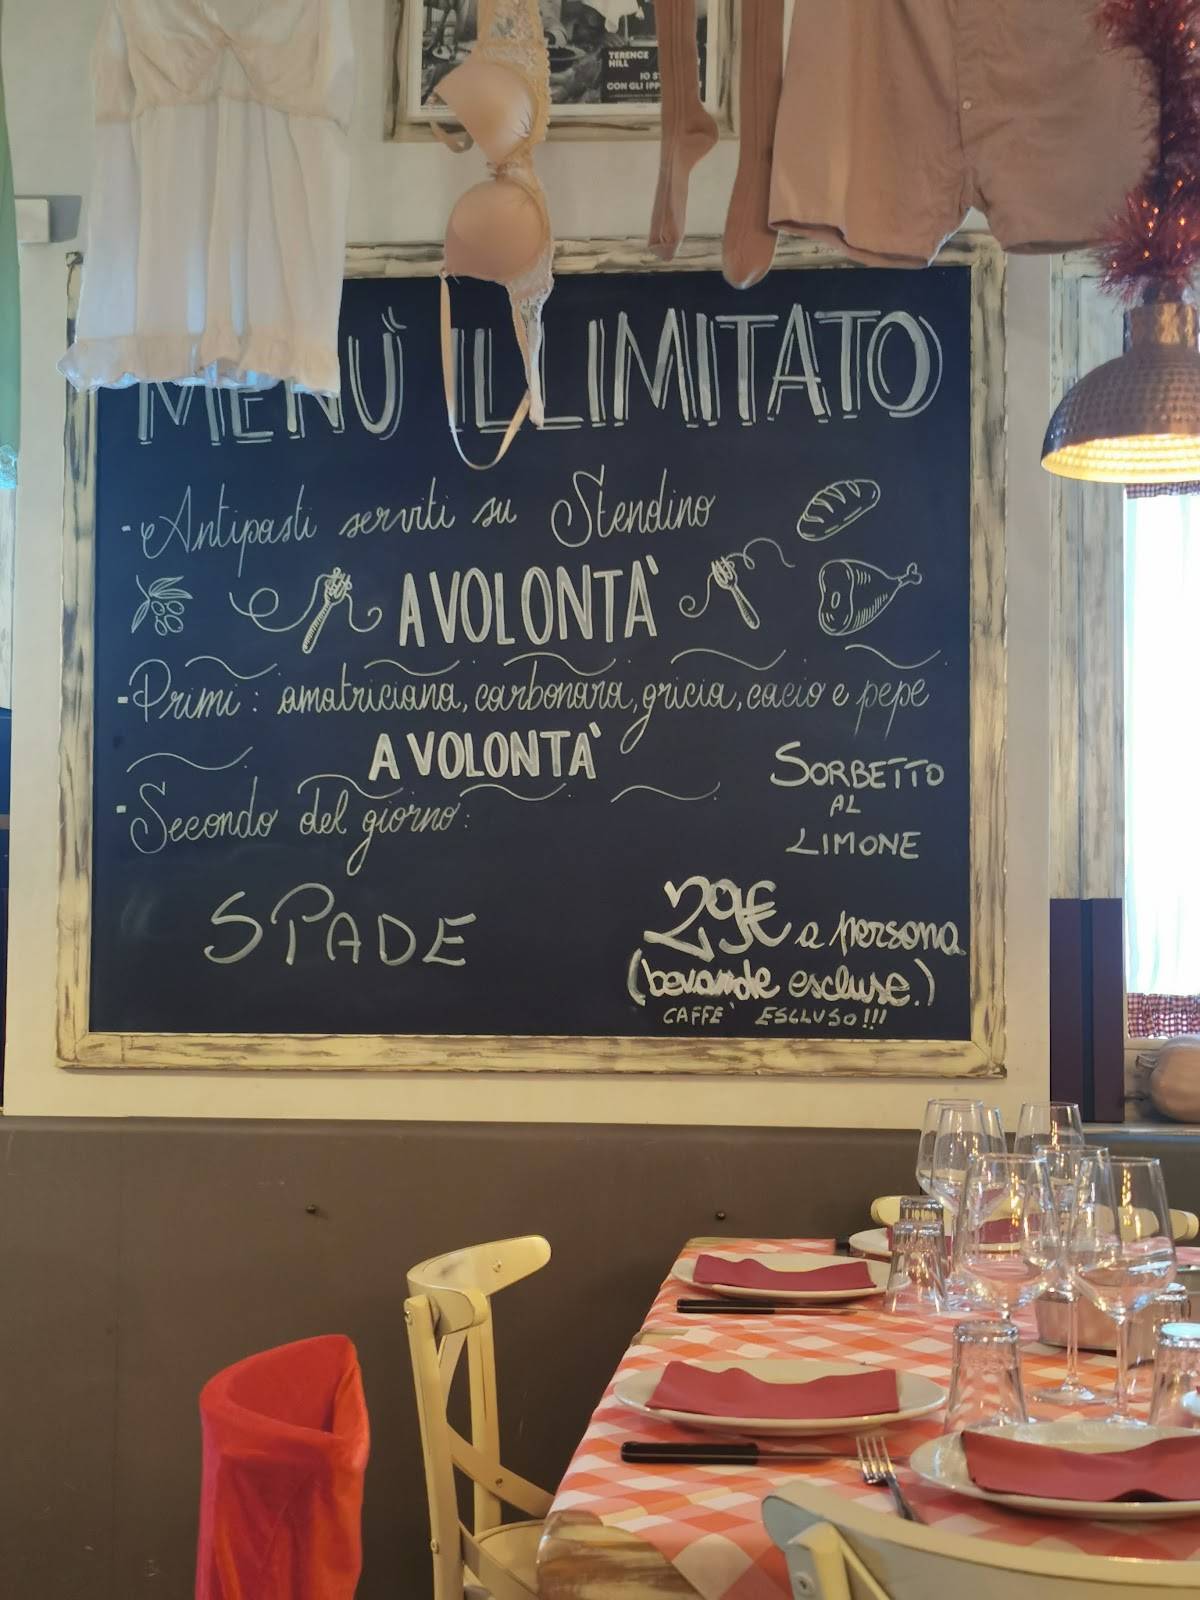 TERENCE
HILL
IO
CON GLI
MENÙ ILLIMITATO
- Antipasti serviti su Stendino
A VOLONTÀ
- Primi: amatriciana, carbonara, gricia, cacio e pepe
A VOLONTÀ
- Secondo del giorno:
SPADE
SORBETTO
AL
LIMONE
29€ a persona
(bevande escluse.)
CAFFE' ESCLUSO!!!